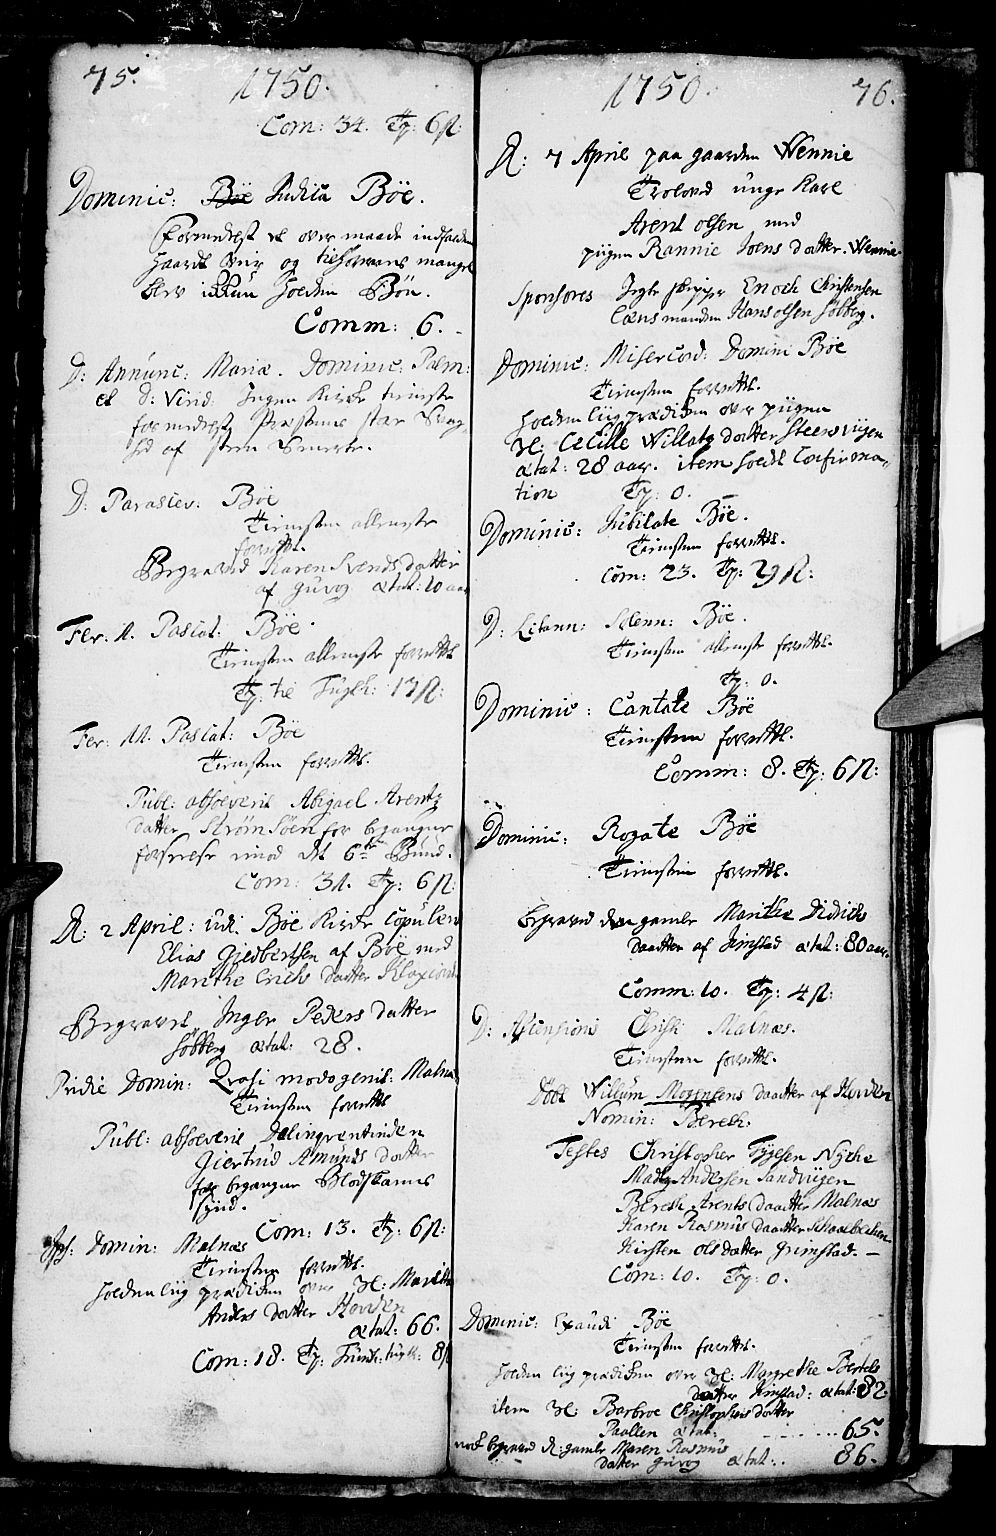 75. 1750.
Com: 34. Tp: 6ß:
Dominic: Böe Judica Böe.
formedelst et over maade indfalden
haardt Veir og tilhørernes mangel
blev ikkun holden Bön.
Comm: 6.
D: Annunc: Mariæ. Dominic: Palm:
et D: Virid: Ingen Kirke tieniste
formedelst Præstens
af Smerte.
D: Parascev: Böe
Tienesten alleniste
forrettet.
Begraved Karen Svends datter
af Guvog ætat: 10 aar
Fer: II. Pascat: Böe.
Tienesten alleniste forrettet
Tp: til 13ß:
Fer: III. Pascat: Böe
Tienesten forrettet.
Publ: absolverit Abigael Arentz
datter Strömsöen for begangne
forseelse imod det 6te Bud.
Com: 31. Tp: 6ß:
D: 2 April: udi Böe Kirke copuleret
Elias Giedbertsen af Böe med
Marithe Erichs datter
Begravet Inger Peders datter
Søbberg ætat: 28.
Pridie Domin: Qvasi modogenit: Malnæs
Tienesten forrettet
Publ: absolverit Delinqventinden
Giertrud Amunds datter
for begangne Blodskams
Synd.
Com: 13. Tp: 6ß:
Ips: Domin: Malnæs
Tienesten forrettet.
holden liig prædiken over Sl: Marithe
Anders datter Hovden
ætat: 66.
Com: 18. Tp: 8ß
1750. 76.
D: 7 April paa gaarden Wennie
Troloved unge Karl
Arent olsen med
piigen Rannie Joens datter. Wennie
Sponsores Jegte skipper Enoch Christensen
Lænsmanden Hans olsen Søbberg.
Dominic: Misercord: Domini Böe
Tienesten forrettet.
holden liig prædiken over piigen
Sl: Cecille Willatz datter Steensviigen
ætat: 28 aar. item holdt Confirma-
tion Tp: 0.
Dominic: Jubilate Böe.
Tienesten forrettet.
Com: 23. Tp: 29ß:
D: Litann: Solenn: Böe.
Tienesten alleniste forrettet.
Tp: 0.
Dominic: Cantate Böe
Tienesten forrettet.
Comm: 8. Tp: 6ß:
Dominic: Rogate Böe
Tienesten forrettet.
Begraved den gamle Marithe Didrichs
daatter af Jimstad ætat: 80 aar.
Comm: 10. Tp: 4ß:
D: Ascensioni Christi Malnæs.
Tienesten forrettet.
Döbt Willum Mogensens daatter af Hovden
Nomin: Bereth.
Testes Christopher Nyche
Madtz Andersen Sandviigen
Bereth Arents daatter Malnæs
Karen Rasmus daatter
Kirsten ols datter Grimstad. —
Com: 10. Tp: 0.
Dominic: Exaudi Böe
Tienesten forrettet.
holden liig prædiken over Sl: Margrethe Bertels
datter Jimstad: ætat: 82.
item Sl: Barbroe Christophers datter
Paallen ætat: ..... 65.
nock begraved d: gamle Maren Rasmus
datter guvog ætat:.. 86.